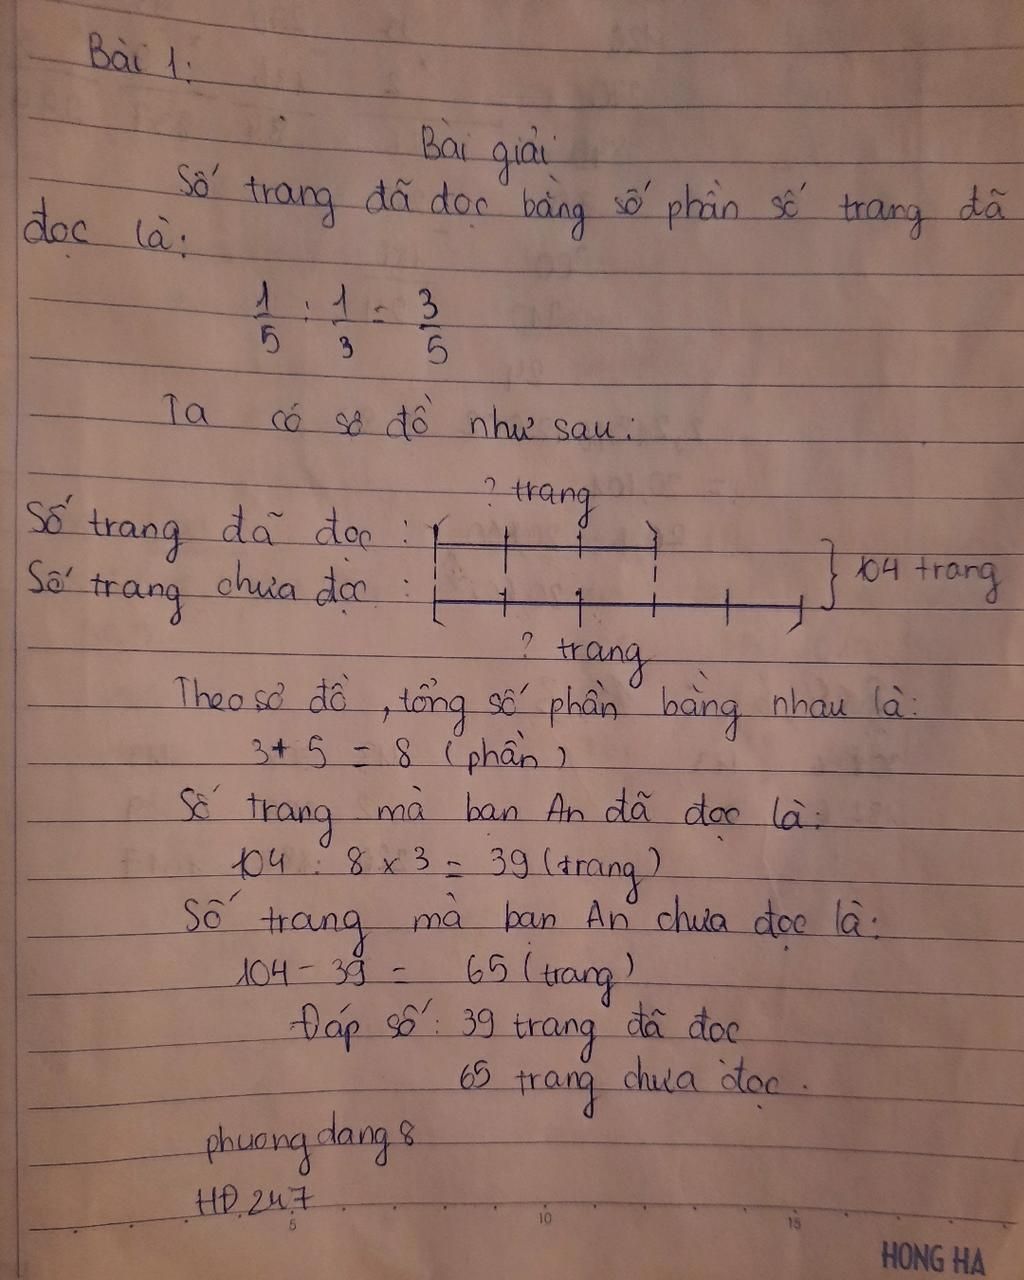 Bài 1:
Bài giải
Số trang đã đọc bằng số phần số trang đã
đọc là:
1/5 : 1/3 = 3/5
Ta có sơ đồ như sau:
? trang
Số trang đã đọc :
Số trang chưa đọc :
104 trang
? trang
Theo sơ đồ, tổng số phần bằng nhau là:
3 + 5 = 8 (phần)
Số trang mà bạn An đã đọc là:
104 : 8 x 3 = 39 (trang)
Số trang mà bạn An chưa đọc là:
104 - 39 = 65 (trang)
Đáp số: 39 trang đã đọc
65 trang chưa đọc.
phuongdang8
HĐ 247
5 10 15
HONG HA